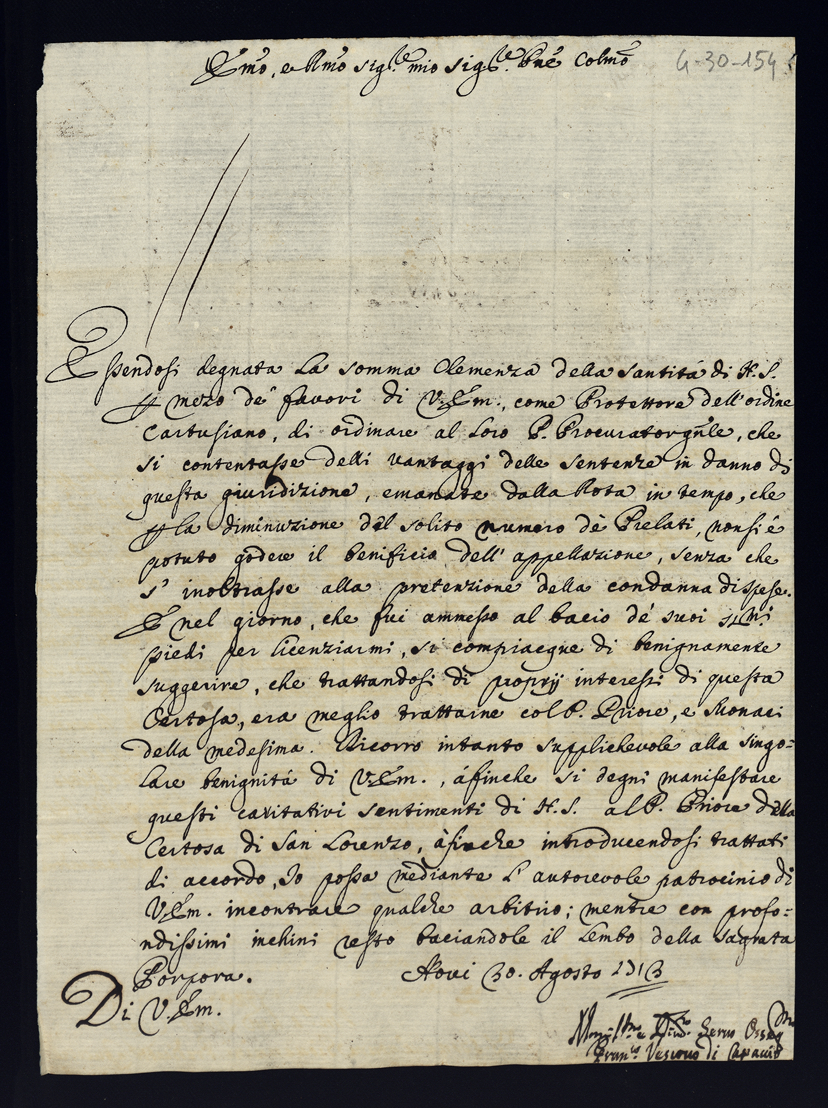 Emo, e Rmo Sigre mio Sigre Pne Colmo
G-30-154
Essendosi degnata La somma Clemenza della Santitá di N.S.
mezo de' favori di V.Em., come Protettore dell'ordine
Cartusiano, di ordinare al Loro P. Procurator gnle, che
si contentasse delli vantaggi delle sentenze in danno di
questa giuridizione, emanate dalla Rota in tempo, che
la diminuzione del solito numero dè Prelati, non si è
potuto godere il benificio dell'appellazione, senza che
s'inoltrasse alla pretenzione della condanna di spese.
E nel giorno, che fui ammesso al bacio de' suoi smi
piedi per licenziarmi, si compiacque di benignamente
suggerire, che trattandosi di proprij interessi di questa
Certosa, era meglio trattarne col P. Priore, e Monaci
della medesima. Ricorro intanto supplichevole alla singo=
lare benignitá di V.Em., áfinche si degni manifestare
questi caritativi sentimenti di N.S. al P. Priore della
Certosa di San Lorenzo, áfinche introducendosi trattati
di accordo, Io possa mediante l'autorevole patrocinio di
V.Em. incontrare qualche arbitrio; mentre con profo=
ndissimi inchini resto baciandole il Lembo della sagrata
Porpora. Novi 30. Agosto 1713
Di V.Em.
Servo
Vescovo di Capaccio